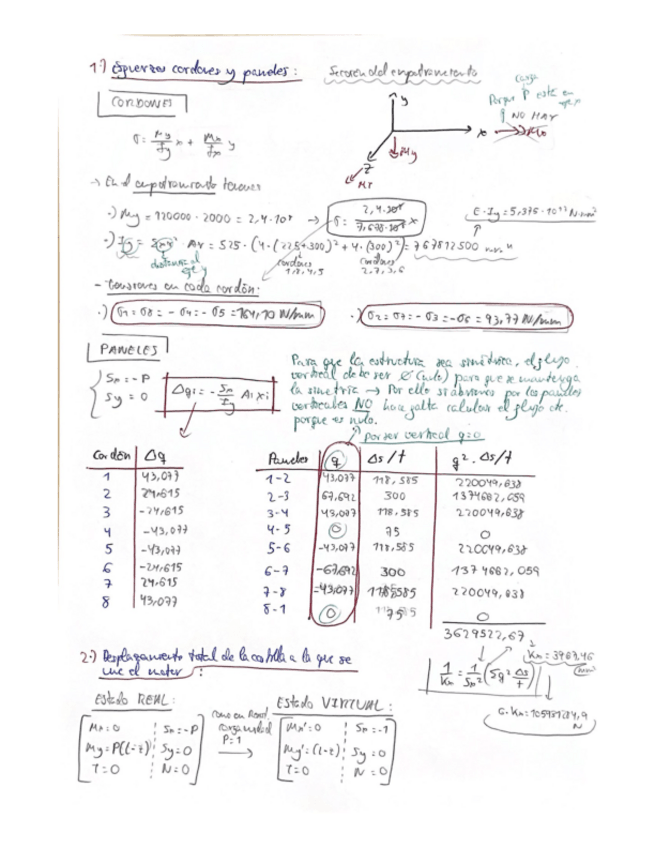 1:) Esfuerzos cordones y paneles:
Sección del empotramiento
carga
Porque P está en
eje x
NO HAY
CORDONES
y
x
z
My
Mt
σ = My/Iy x + Mx/Ix y
→ En el empotramiento tenemos
·) My = 120000 · 2000 = 2,4·10⁸ → σ = 2,4·10⁸ / 7,678·10⁸ x
E·Iy = 5,375·10¹³ N·mm²
·) Iy = Σmx² · Ar = 525 · (4·(225+300)² + 4·(300)²) = 767812500 mm⁴
distancia al
eje y
cordones
1,8,4,5
cordones
2,7,3,6
- Tensiones en cada cordón:
·) σ1 = σ8 = -σ4 = -σ5 = 164,10 N/mm
·) σ2 = σ7 = -σ3 = -σ6 = 93,77 N/mm
PANELES
Sx = -P
Sy = 0
Δqi = - Sx/Iy Ai xi
Para que la estructura sea simétrica, el flujo
vertical debe ser 0 (nulo) para que se mantenga
la simetría → Por ello si abrimos por los paneles
verticales NO hace falta calcular el flujo cte.
porque es nulo.
por ser vertical q=0
Cordón Δq
1 43,077
2 24,615
3 -24,615
4 -43,077
5 -43,077
6 -24,615
7 24,615
8 43,077
Paneles q Δs/t q²·Δs/t
1-2 43,077 118,585 220049,638
2-3 67,692 300 1374662,059
3-4 43,077 118,585 220049,638
4-5 0 75 0
5-6 -43,077 118,585 220049,638
6-7 -67,692 300 1374662,059
7-8 -43,077 118,585 220049,638
8-1 0 75 0
3629522,67
2:) Desplazamiento total de la costilla a la que se
une el motor:
1/Km = 1/Sx² (Σq² Δs/t)
Km = 3967,46
G·Km = 105931784,9
N
Estado REAL:
Mx = 0 Sx = -P
My = P(L-z) Sy = 0
T = 0 N = 0
como en Real
carga unidad
P=1
Estado VIRTUAL:
Mx' = 0 Sx = -1
My' = (L-z) Sy = 0
T = 0 N = 0